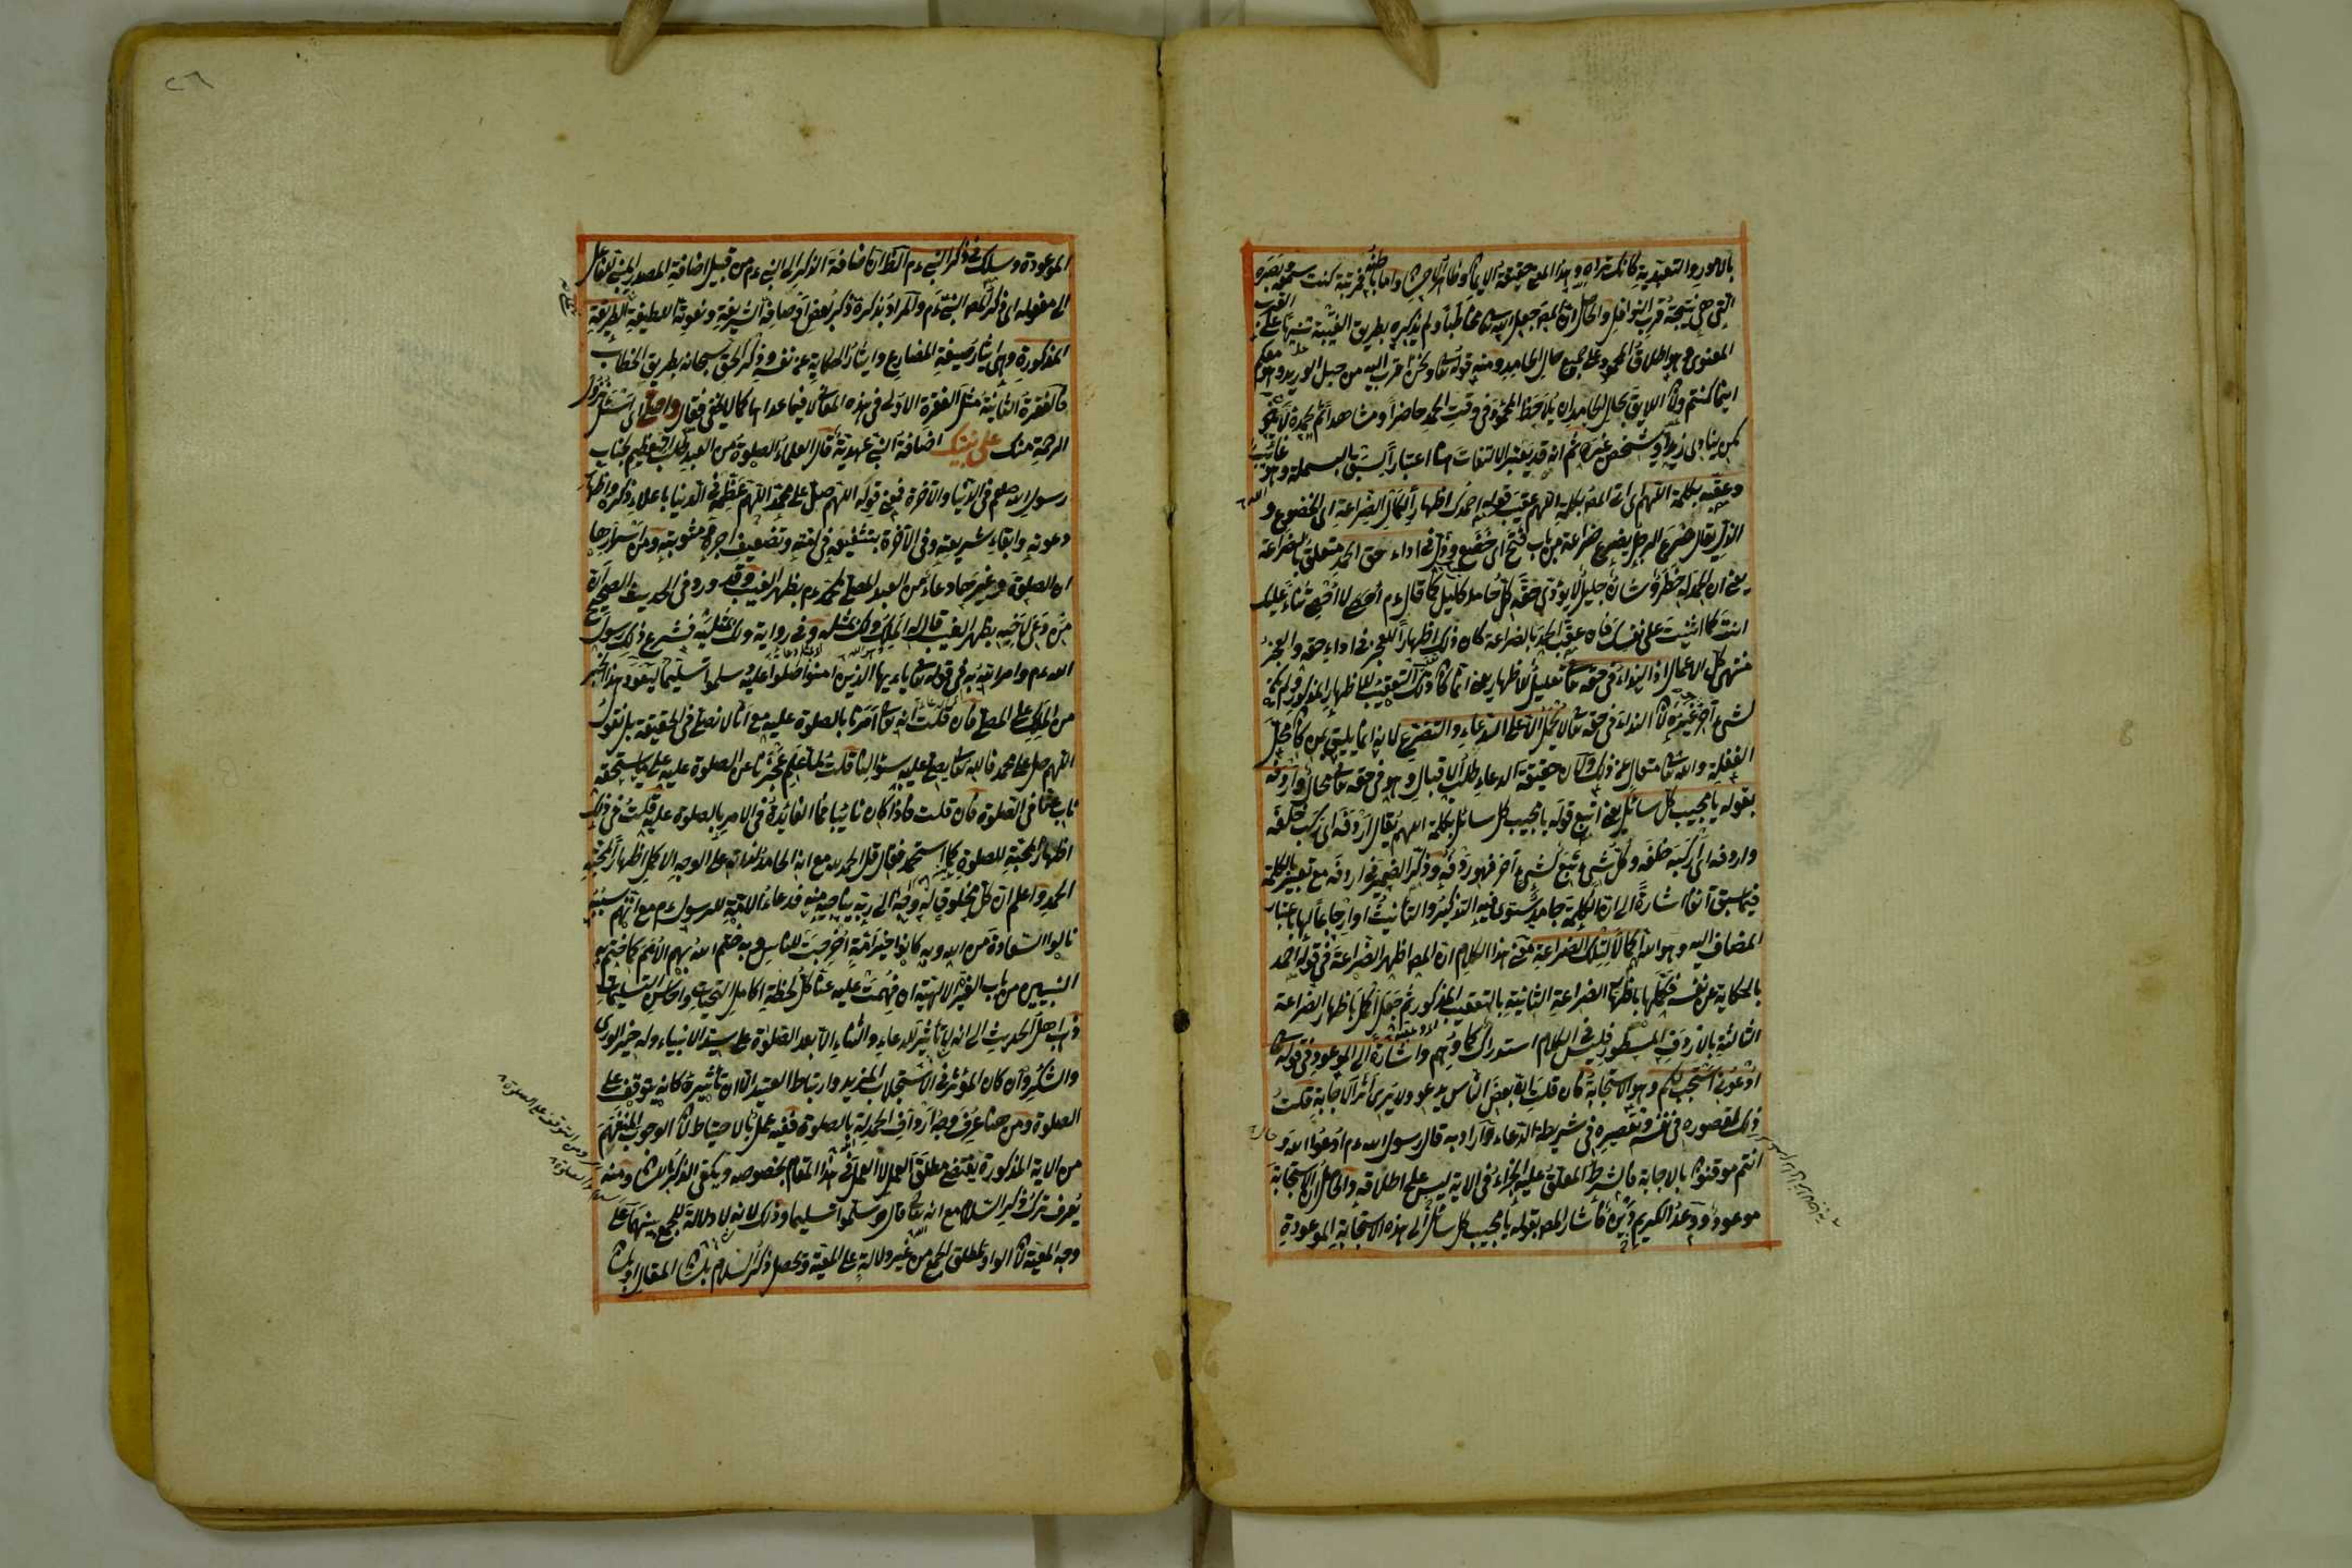 بالامور التعبدية كانك تراه وهذا المعنى حقيقة الايمان وظاهر الاحسان واما باطنه فمرتبة كنت سمعه وبصره
التى هى نتيجة قرب النوافل والحاصل ان المص جعل الله تعا مخاطبا ولم يذكره بطريق الغيبة تنبيها على القرب
المعنوى وهو اطلاق المحمود على جميع حال الحامد ومنه قوله تعا ونحن اقرب اليه من حبل الوريد وهو معكم
اينما كنتم ولان اللايق بحال الحامد ان يلاحظ المحمود فى وقت الحمد حاضرا ومشاهدا ثم يحمده لا
كمن ينادى زيدا ويشخص غيره ثم انه قد يعتبر الالتفات هنا اعتبارا لسبق البسملة وهو غائب
وعقبه بكلمة اللهم اى اتى المص بكلمة اللهم عقيب قوله احمدك اظهارا لكمال الضراعة اى الخضوع و
الذل يقال ضرع الرجل يضرع ضراعة من باب فتح اى خضع وذل فى اداء حق الحمد متعلق بالضراعة
يعنى ان الحمد له خطر وشان جليل لا يؤدى حقه كل حامد كليل كما قال ءم لا احصى ثناء عليك
انت كما اثنيت على نفسك فان عقب الحمد بالضراعة كان ذلك اظهارا للعجز فى اداء حقه والعجز
منتهى كل الاعمال اذ النداء فى حقه تعا تعليل للاظهار يعنى انما كان ذلك التعقيب للاظهار المذكور ولم يكن
لشئ آخر غيره لان النداء فى حقه تعا لا يحمل الا على الدعاء والتضرع لانه انما يليق بمن كان محل
الغفلة والله تعا متعال عن ذلك ولان حقيقة الدعاء طلب الاقبال وهو فى حقه تعا محال واردفه
بقوله يا مجيب كل سائل يعنى اتبع قوله يا مجيب كل سائل بكلمة اللهم يقال اردفه اى ركب خلفه
واردفه اى اركبه خلفه وكل شئ تبع لشئ آخر فهو ردفه وذكر الضمير فى اردفه مع تعبير بالكلمة
فيما سبق آنفا اشارة الى ان الكلمة جامد يستوى فيه التذكير والتانيث او ارجاعا لها باعتبار
المضاف اليه وهو اللهم كمالا لتلك الضراعة فمعنى هذا الكلام ان المص اظهر الضراعة فى قوله احمد
بالحكاية عن نفسه فكملها باظهار الضراعة الثانية بالتعقيب المذكور ثم جعل اكمل باظهار الضراعة
الثالثة بالارداف المسطور فليس فى الكلام استدراك كما وهم واشارة الى الموعود فى قوله تعا
ادعونى استجب لكم وهو الاستجابة فان قلت ان بعض الناس يدعو ولا يرى اثر الاجابة قلت
ذلك لقصوره فى نفسه وتقصيره فى شريطة الدعاء وآدابه قال رسول الله ءم ادعوا الله و
انتم موقنون بالاجابة فالشرط المعلق عليه الجزاء فى الاية ليس على اطلاقه والحاصل ان الاستجابة
موعود ووعد الكريم دين فاشار المص بقوله يا مجيب كل سائل الى هذه الاستجابة الموعودة
الموعودة وسلك فى ذكر النبى ءم الظ ان اضافة الذكر الى النبى ءم من قبيل اضافة المصدر المبنى للفاعل
الى مفعوله اى ذكر المص النبى ءم والمراد بذكره ذكر بعض اوصافه الشريفة ونعوته اللطيفة الطريقة
المذكورة وهى ايثار صيغة المضارع وايثار الحكاية عن نفسه وذكر الحق سبحانه بطريق الخطاب
فالفقرة الثانية مثل الفقرة الاولى فى هذه المعانى لا فيما عداها كما لا يخفى فقال واصلى اى استنزل
الرحمة منك على نبيك اضافة النبى عهدية قال العلماء الصلوة من العبد طلب التعظيم بجناب
رسول الله صلعم فى الدنيا والآخرة فمعنى قوله اللهم صل على محمد اللهم عظمه فى الدنيا باعلاء ذكره واظهار
دعوته وابقاء شريعته وفى الآخرة بتشفيعه فى امته وتضعيف اجره ومثوبته ومن اسرارها
ان الصلوة وغيرها دعاء من العبد المصلى لمحمد ءم بظهر الغيب وقد ورد فى الحديث الصحيح ان
من دعى لاخيه بظهر الغيب قال له الملك ولك بمثله وفى رواية ولك بمثليه فشرع ذلك رسول
الله ءم وامر الله به فى قوله تعا يا ءيها الذين امنوا صلوا عليه وسلموا تسليما ليعود هذا الخير
من الملك على المصلى فان قلت انه تعا امرنا بالصلوة عليه مع انا لا نصلى فى الحقيقة بل نقول
اللهم صل على محمد فالله تعا يصلى عليه بسؤالنا قلت لما علم عجزنا عن الصلوة عليه على ما يستحقه
ناب عنا فى الصلوة فان قلت فاذا كان نائبا فما الفائدة فى الامر بالصلوة عليه قلت فى ذلك
اظهار المحبة للصلوة كما استحمد فقال قل الحمد لله مع انه الحامد لذاته على الوجه الاكمل اظهارا لمحبة
الحمد واعلم ان كل مخلوق له وجه الى ربه يناجيه منه فدعاء الامة للرسول ءم مع انهم بسببه
نالوا السعادة من الله وبه كانوا خير امة اخرجت للناس وبه ختم الله بهم الامم كما ختم به
النبيين من باب الغيرة الالهية ان فهمت عليه عنا كل لحظة اكامل التحيات واخالص التسليمات
ذهب اهل الحديث الى انه لا تأثير للدعاء والثناء الا بعد الصلوة على سيد الانبياء وله خير الورى
والشكر وان كان المؤثر فى الاستجلاب المزيد وارتباط العتيد الا ان تأثيره كانه يتوقف على
الصلوة ومن هنا عرف وجه ارداف الحمدلة بالصلوة ففيه عمل بالاحتياط لان الوجوب المنفهم
من الاية المذكورة يقتضى مطلق العمل لا العمل فى هذا المقام بخصوصه ويكفى الذكر باللسان ومنه
يعرف ترك ذكر السلام مع انه تعا قال وسلموا تسليما وذلك لانه لا دلالة للجمع بينهما على
وجه المعية لان الواو لمطلق الجمع من غير دلالة على المعية ويحصل ذكر السلام بلسان المقال او بلسان